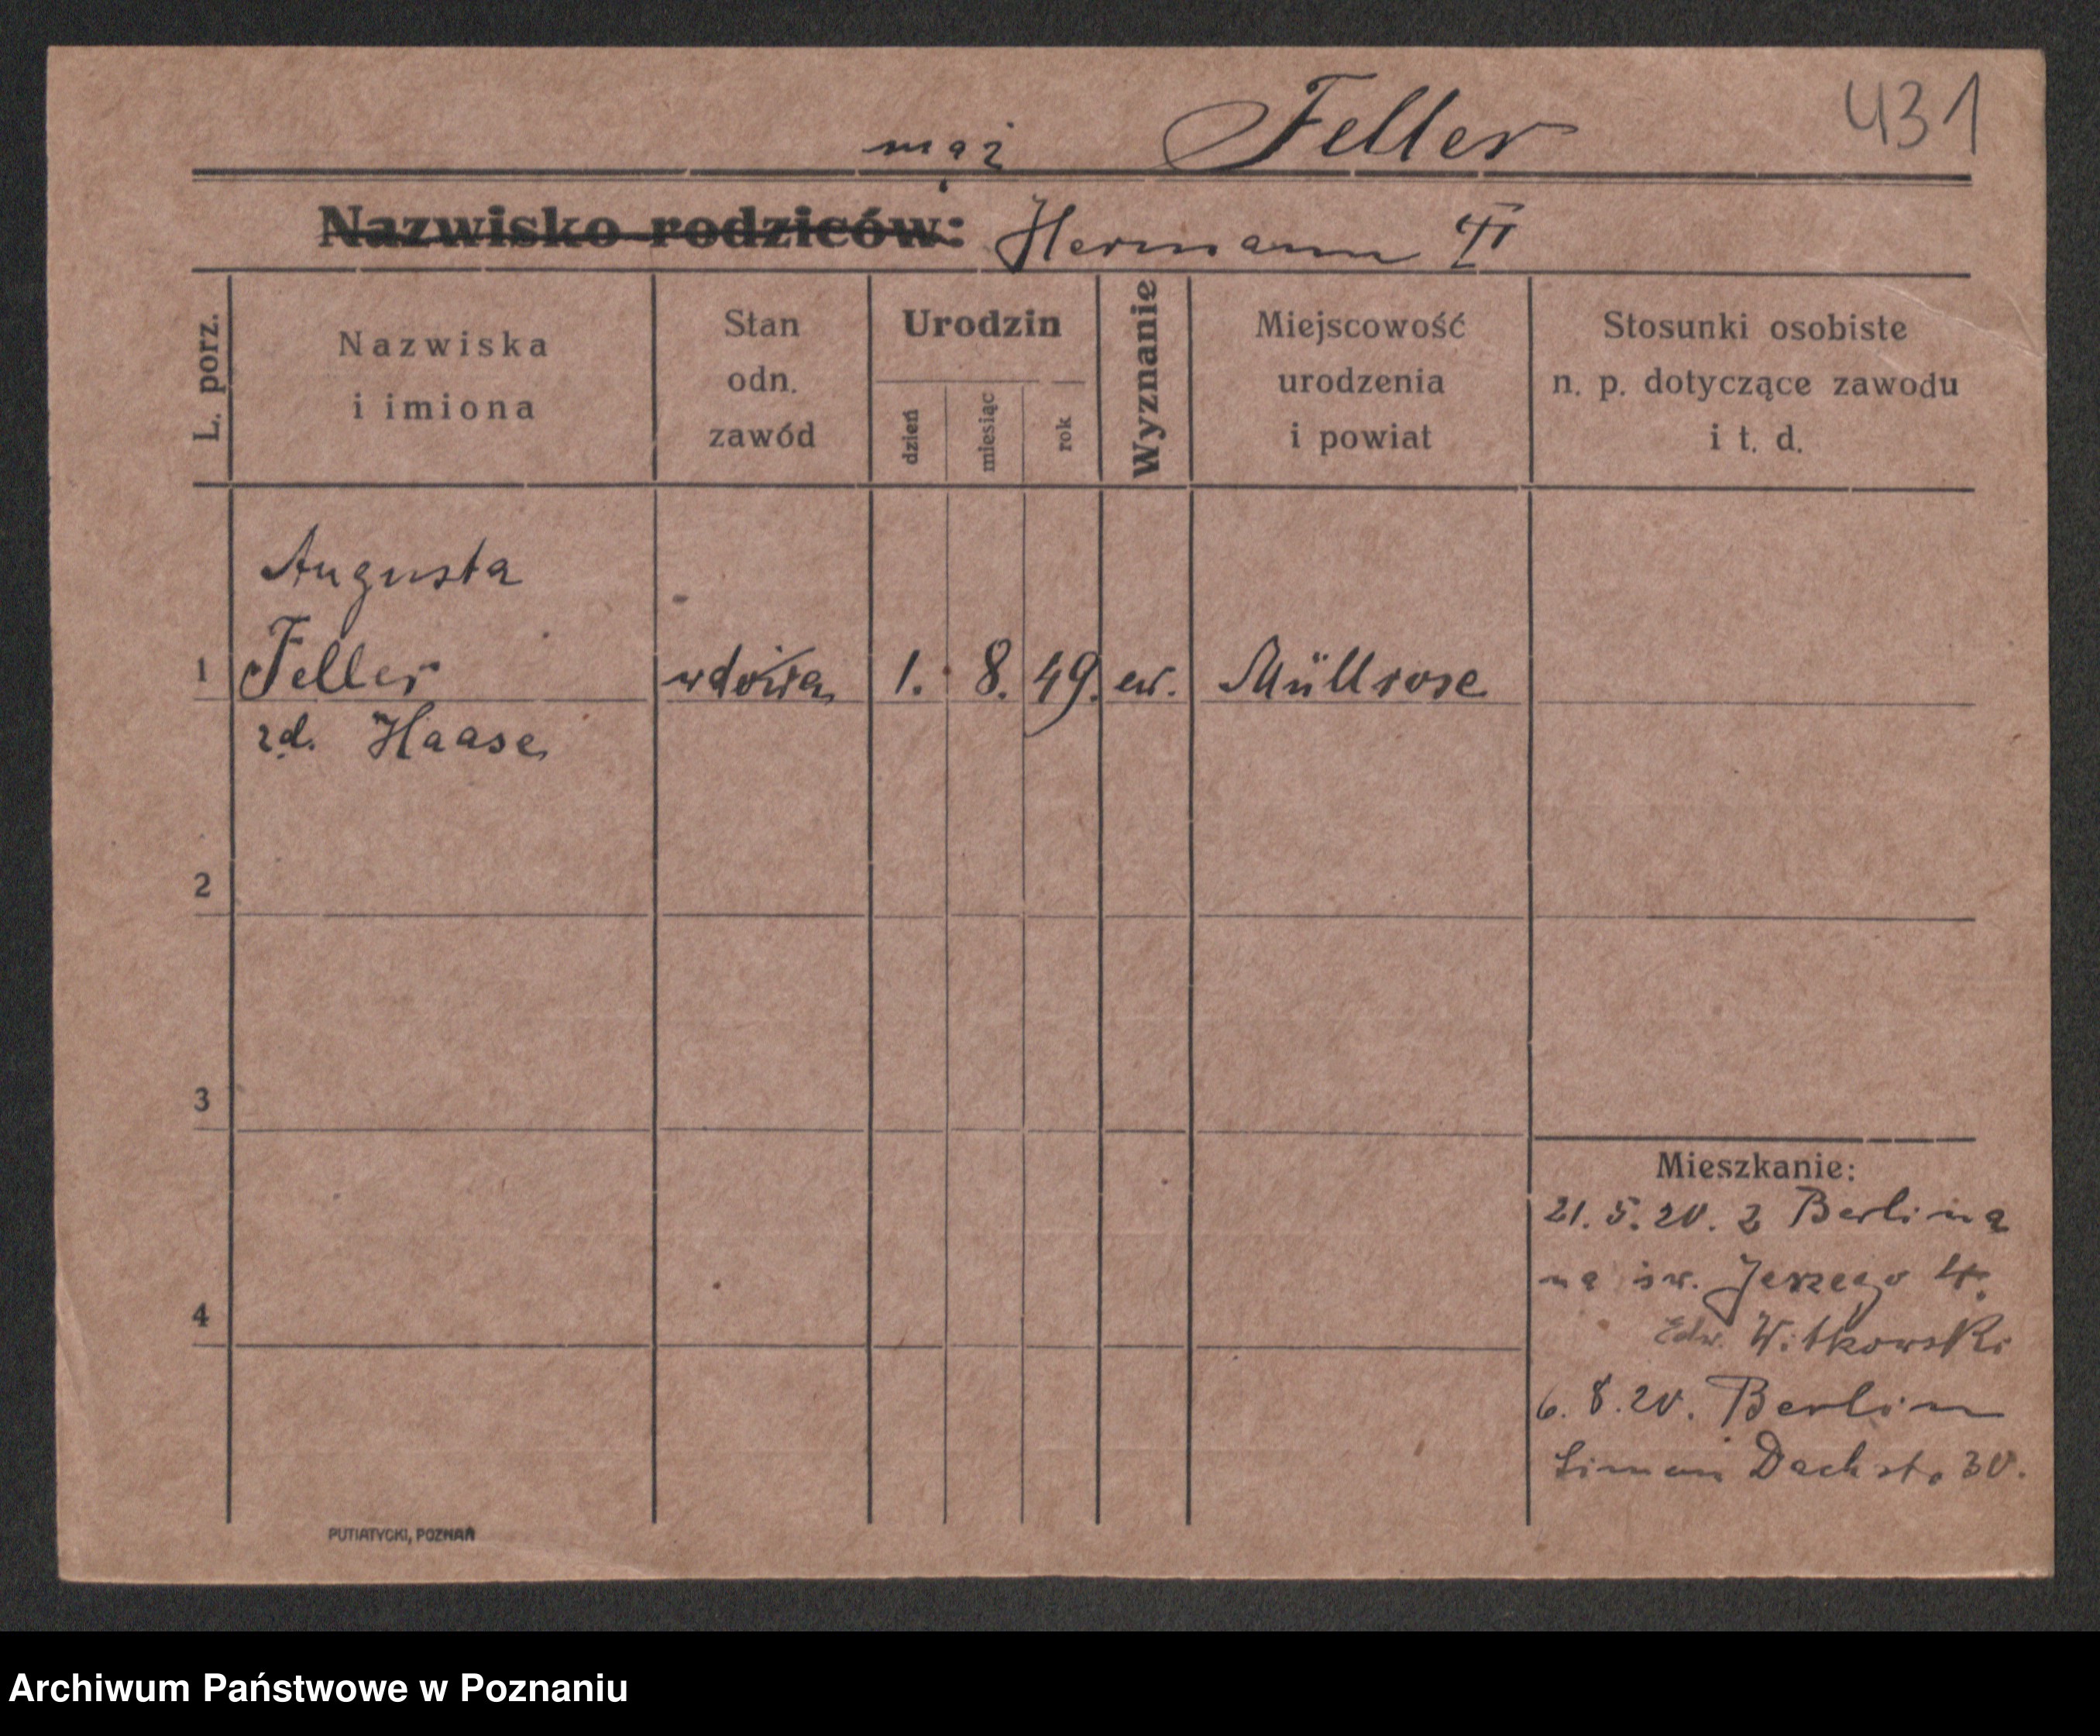 431
Feller
mąż
Nazwisko rodziców: Hermann II
L. porz.
Nazwiska
i imiona
Stan
odn.
zawód
Urodzin
dzień
miesiąc
rok
Wyznanie
Miejscowość
urodzenia
i powiat
Stosunki osobiste
n. p. dotyczące zawodu
i t. d.
Augusta
1 Feller wdowa 1. 8. 49. ew. Müllrose
zd. Haase
2
3
4
Mieszkanie:
21. 5. 20. z Berlina
na św. Jerzego 4.
Edw. Witkowski
6. 8. 20. Berlin
Simon Dachst. 30.
PUTIATYCKI, POZNAŃ
Archiwum Państwowe w Poznaniu